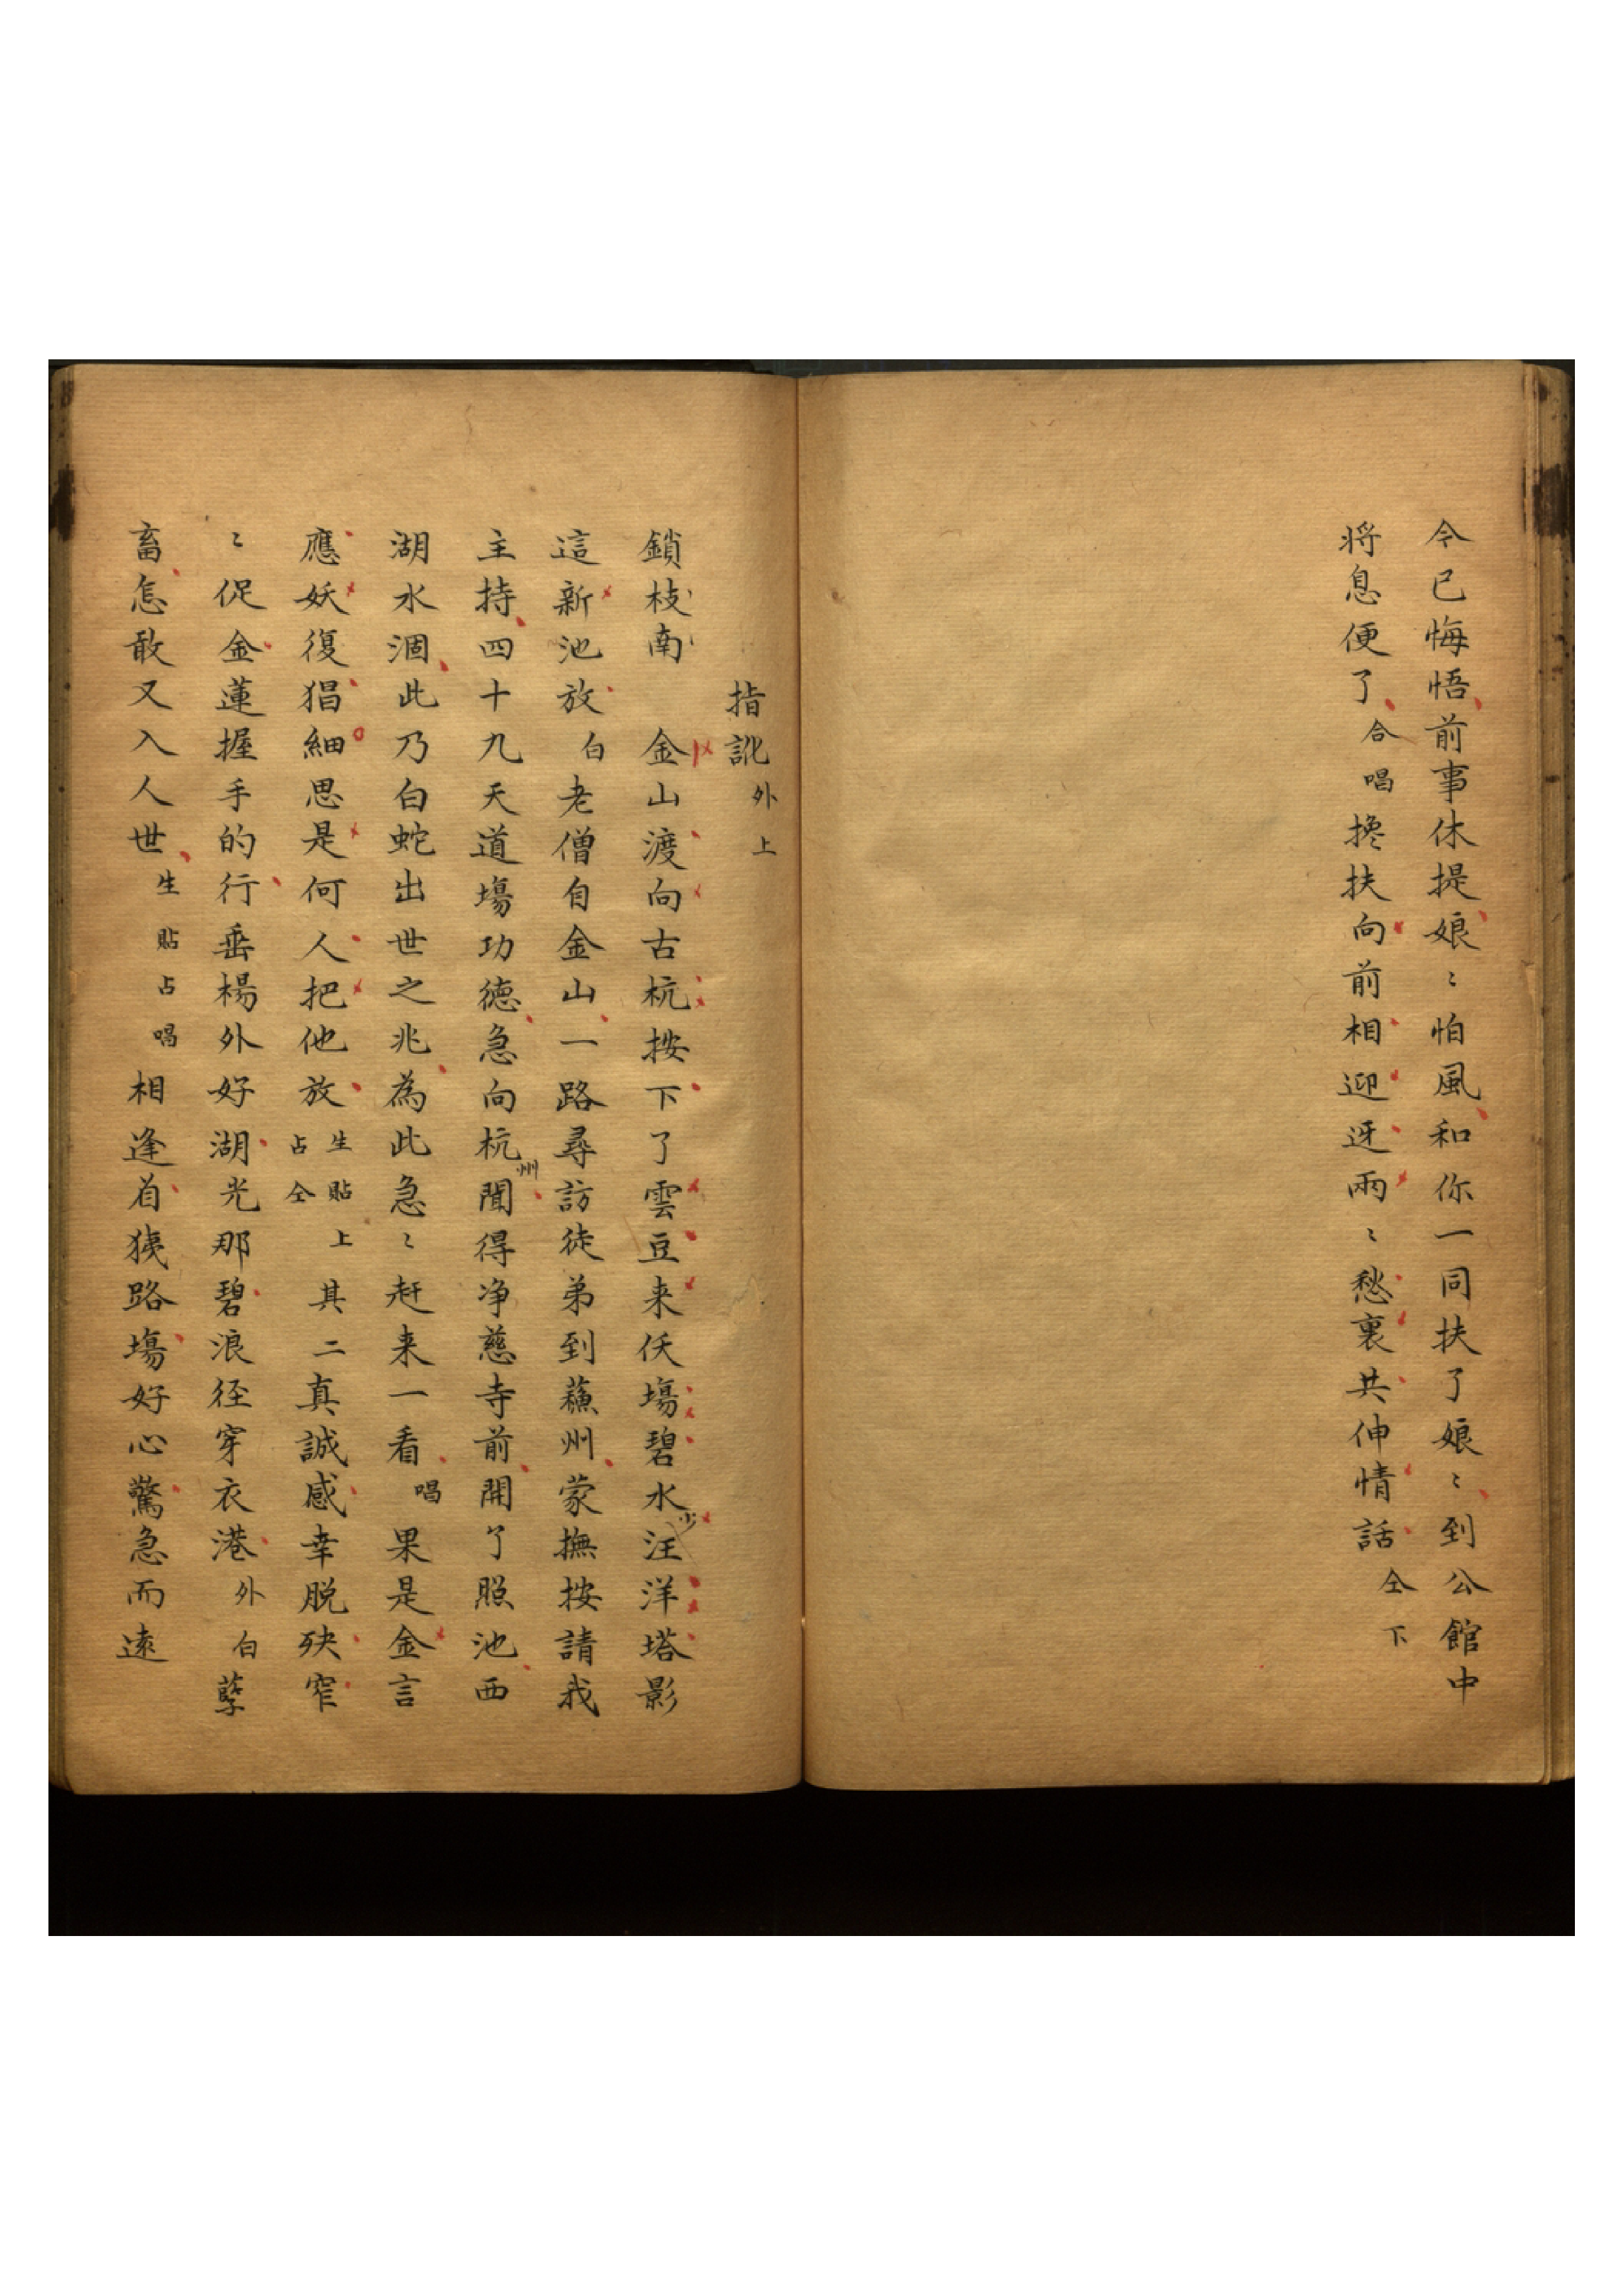 令已悔悟前事休提娘〻怕風和你一同扶了娘〻到公館中
将息便了合唱搀扶向前相迎迓兩〻愁裏共伸情話仝下
指訛外上
鎖枝南　金山渡向古杭按下了雲豆来仸塲碧水汪洋塔影
少
這新池放白老僧自金山一路尋訪徒弟到蘓州蒙撫按請我
主持四十九天道塲功德急向杭州聞得净慈寺前開了照池西
湖水涸此乃白蛇出世之兆為此急〻赶来一看唱果是金言
應妖復猖細思是何人把他放生貼上占仝其二真誠感幸脱殃窄
〻促金蓮握手的行垂楊外好湖光那碧浪径穿衣港外白孽
畜怎敢又入人世生貼占唱相逢着狭路塲好心驚急而遠